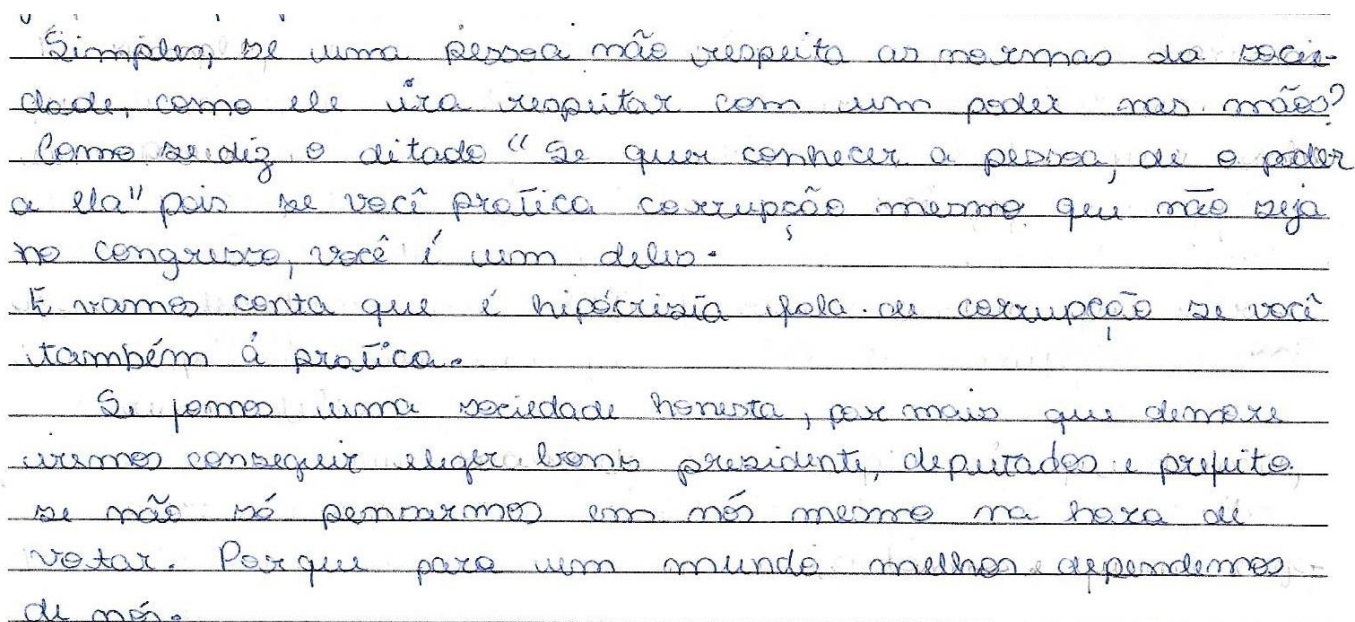 Simples, se uma pessoa não respeita as normas da socie-
dade, como ele íra respeitar com um poder nas mãos?
Como se diz o ditado "Se quer conhecer a pessoa, de o poder
a ela" pois se você pratica corrupção mesmo que não seja
no congresso, você é um deles.
E vamos conta que é hipócrisia fala de corrupção se você
também á pratica.
Se fomos uma sociedade honesta, por mais que demore
iremos conseguir eleger bons presidente, deputados e prefeito.
se não só pensarmos em nós mesmo na hora de
votar. Porque para um mundo melhor dependemos
de nós.